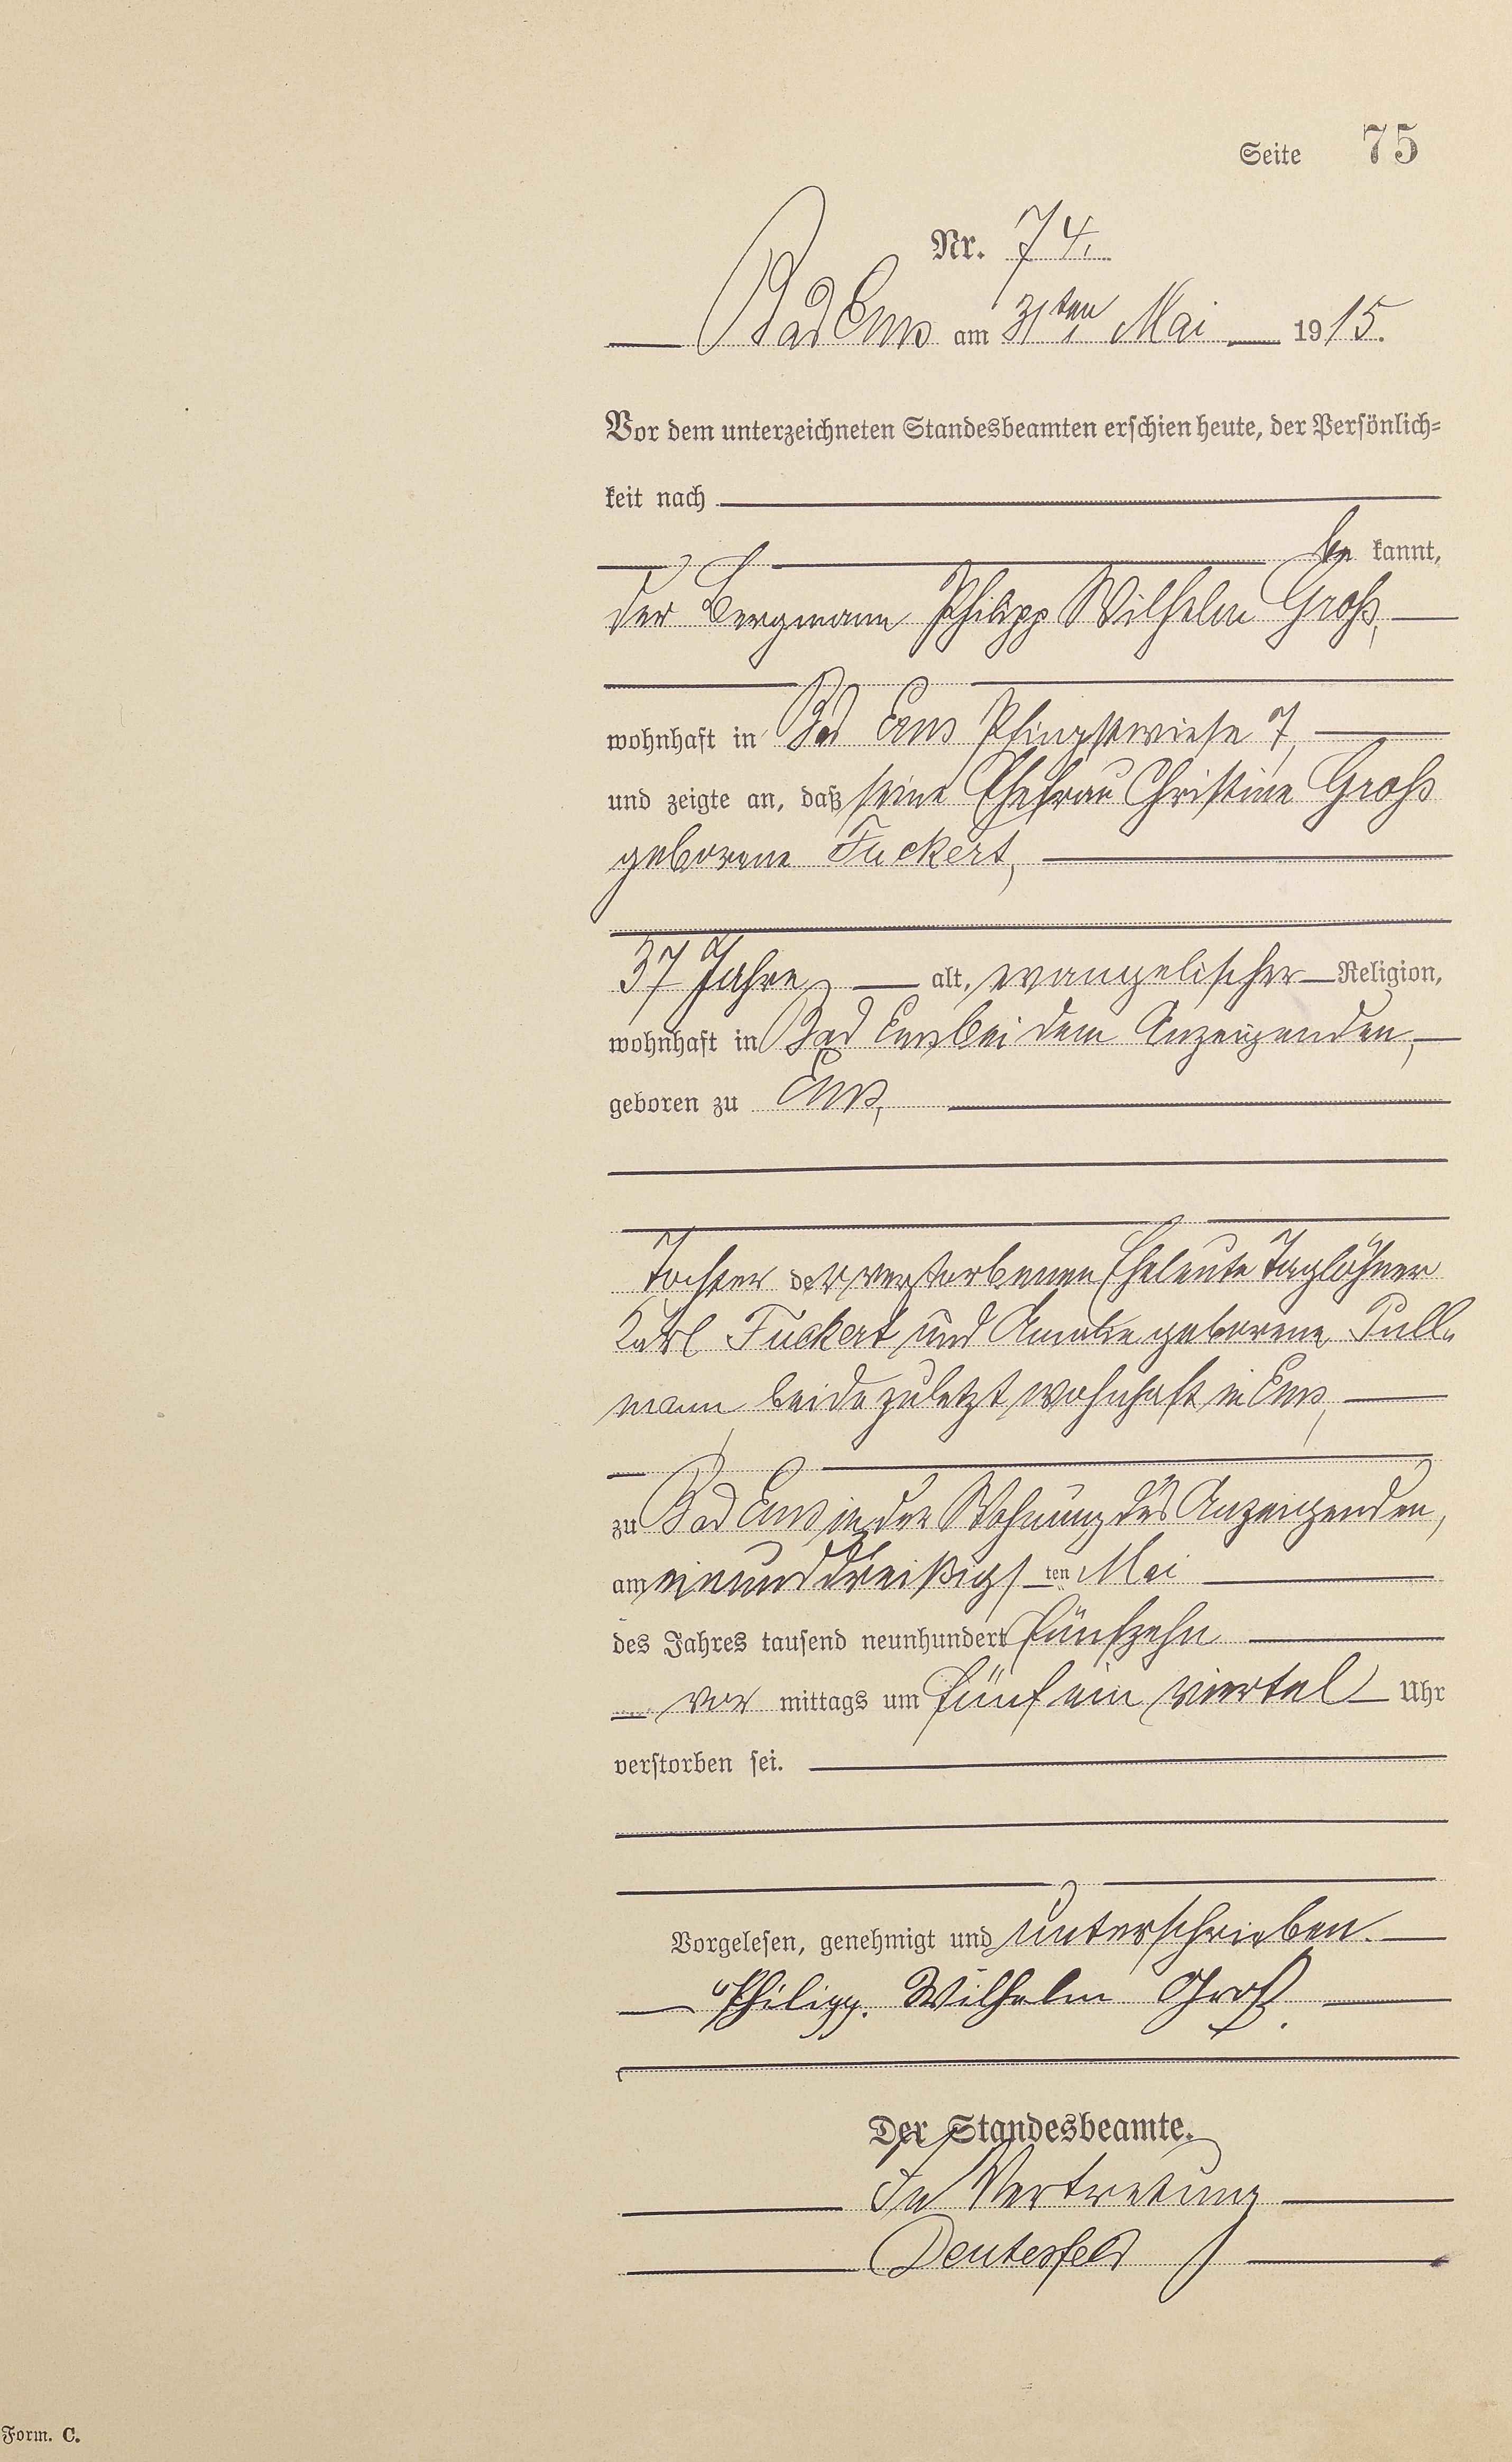 Seite 75
Nr. 74.
Bad Ems am 31ten Mai 1915.
Vor dem unterzeichneten Standesbeamten erschien heute, der Persönlich=
keit nach
be kannt,
der Bergmann Philipp Wilhelm Groß,
wohnhaft in Bad Ems Pfingstwiese 7,
und zeigte an, daß seine Ehefrau Christine Groß
geborene Fuckert,
37 Jahre alt, evangelischer Religion,
wohnhaft in Bad Ems bei dem Anzeigenden,
geboren zu Ems,
Tochter der verstorbenen Eheleute Taglöhner
Karl Fuckert und Amalie geborene Pull-
mann beide zuletzt wohnhaft in Ems,
zu Bad Ems in der Wohnung des Anzeigenden,
am einunddreißigsten Mai
des Jahres tausend neunhundert fünfzehn
vor mittags um fünf ein viertel Uhr
verstorben sei.
Vorgelesen, genehmigt und unterschrieben.
Philipp. Wilhelm Groß.
Der Standesbeamte.
In Vertretung
Deutesfeld
Form. C.